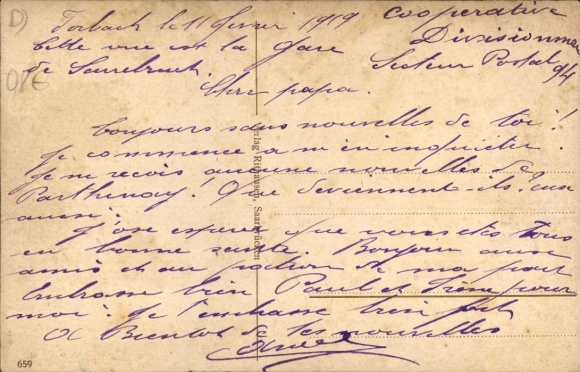 D)
Forbach le 11 février 1919
Cooperative
Divisionnaire
Cette vue est la gare
de Sarrebruck.
Secteur Postal 94
Cher papa.
Toujours sans nouvelles de toi!
je commence a m'en inquiéter.
Je ne reçois aucune nouvelles de
Parthenay. Que deviennent-ils? eux
aussi.
J'ose esperer que vous etes tous
en bonne santé. Bonjour aux
amis et au patron de ma part
Embrasse bien Paul et Irene pour
moi. Je t'embrasse bien fort
A Bientot de tes nouvelles
Verlag Saarbrücken
659